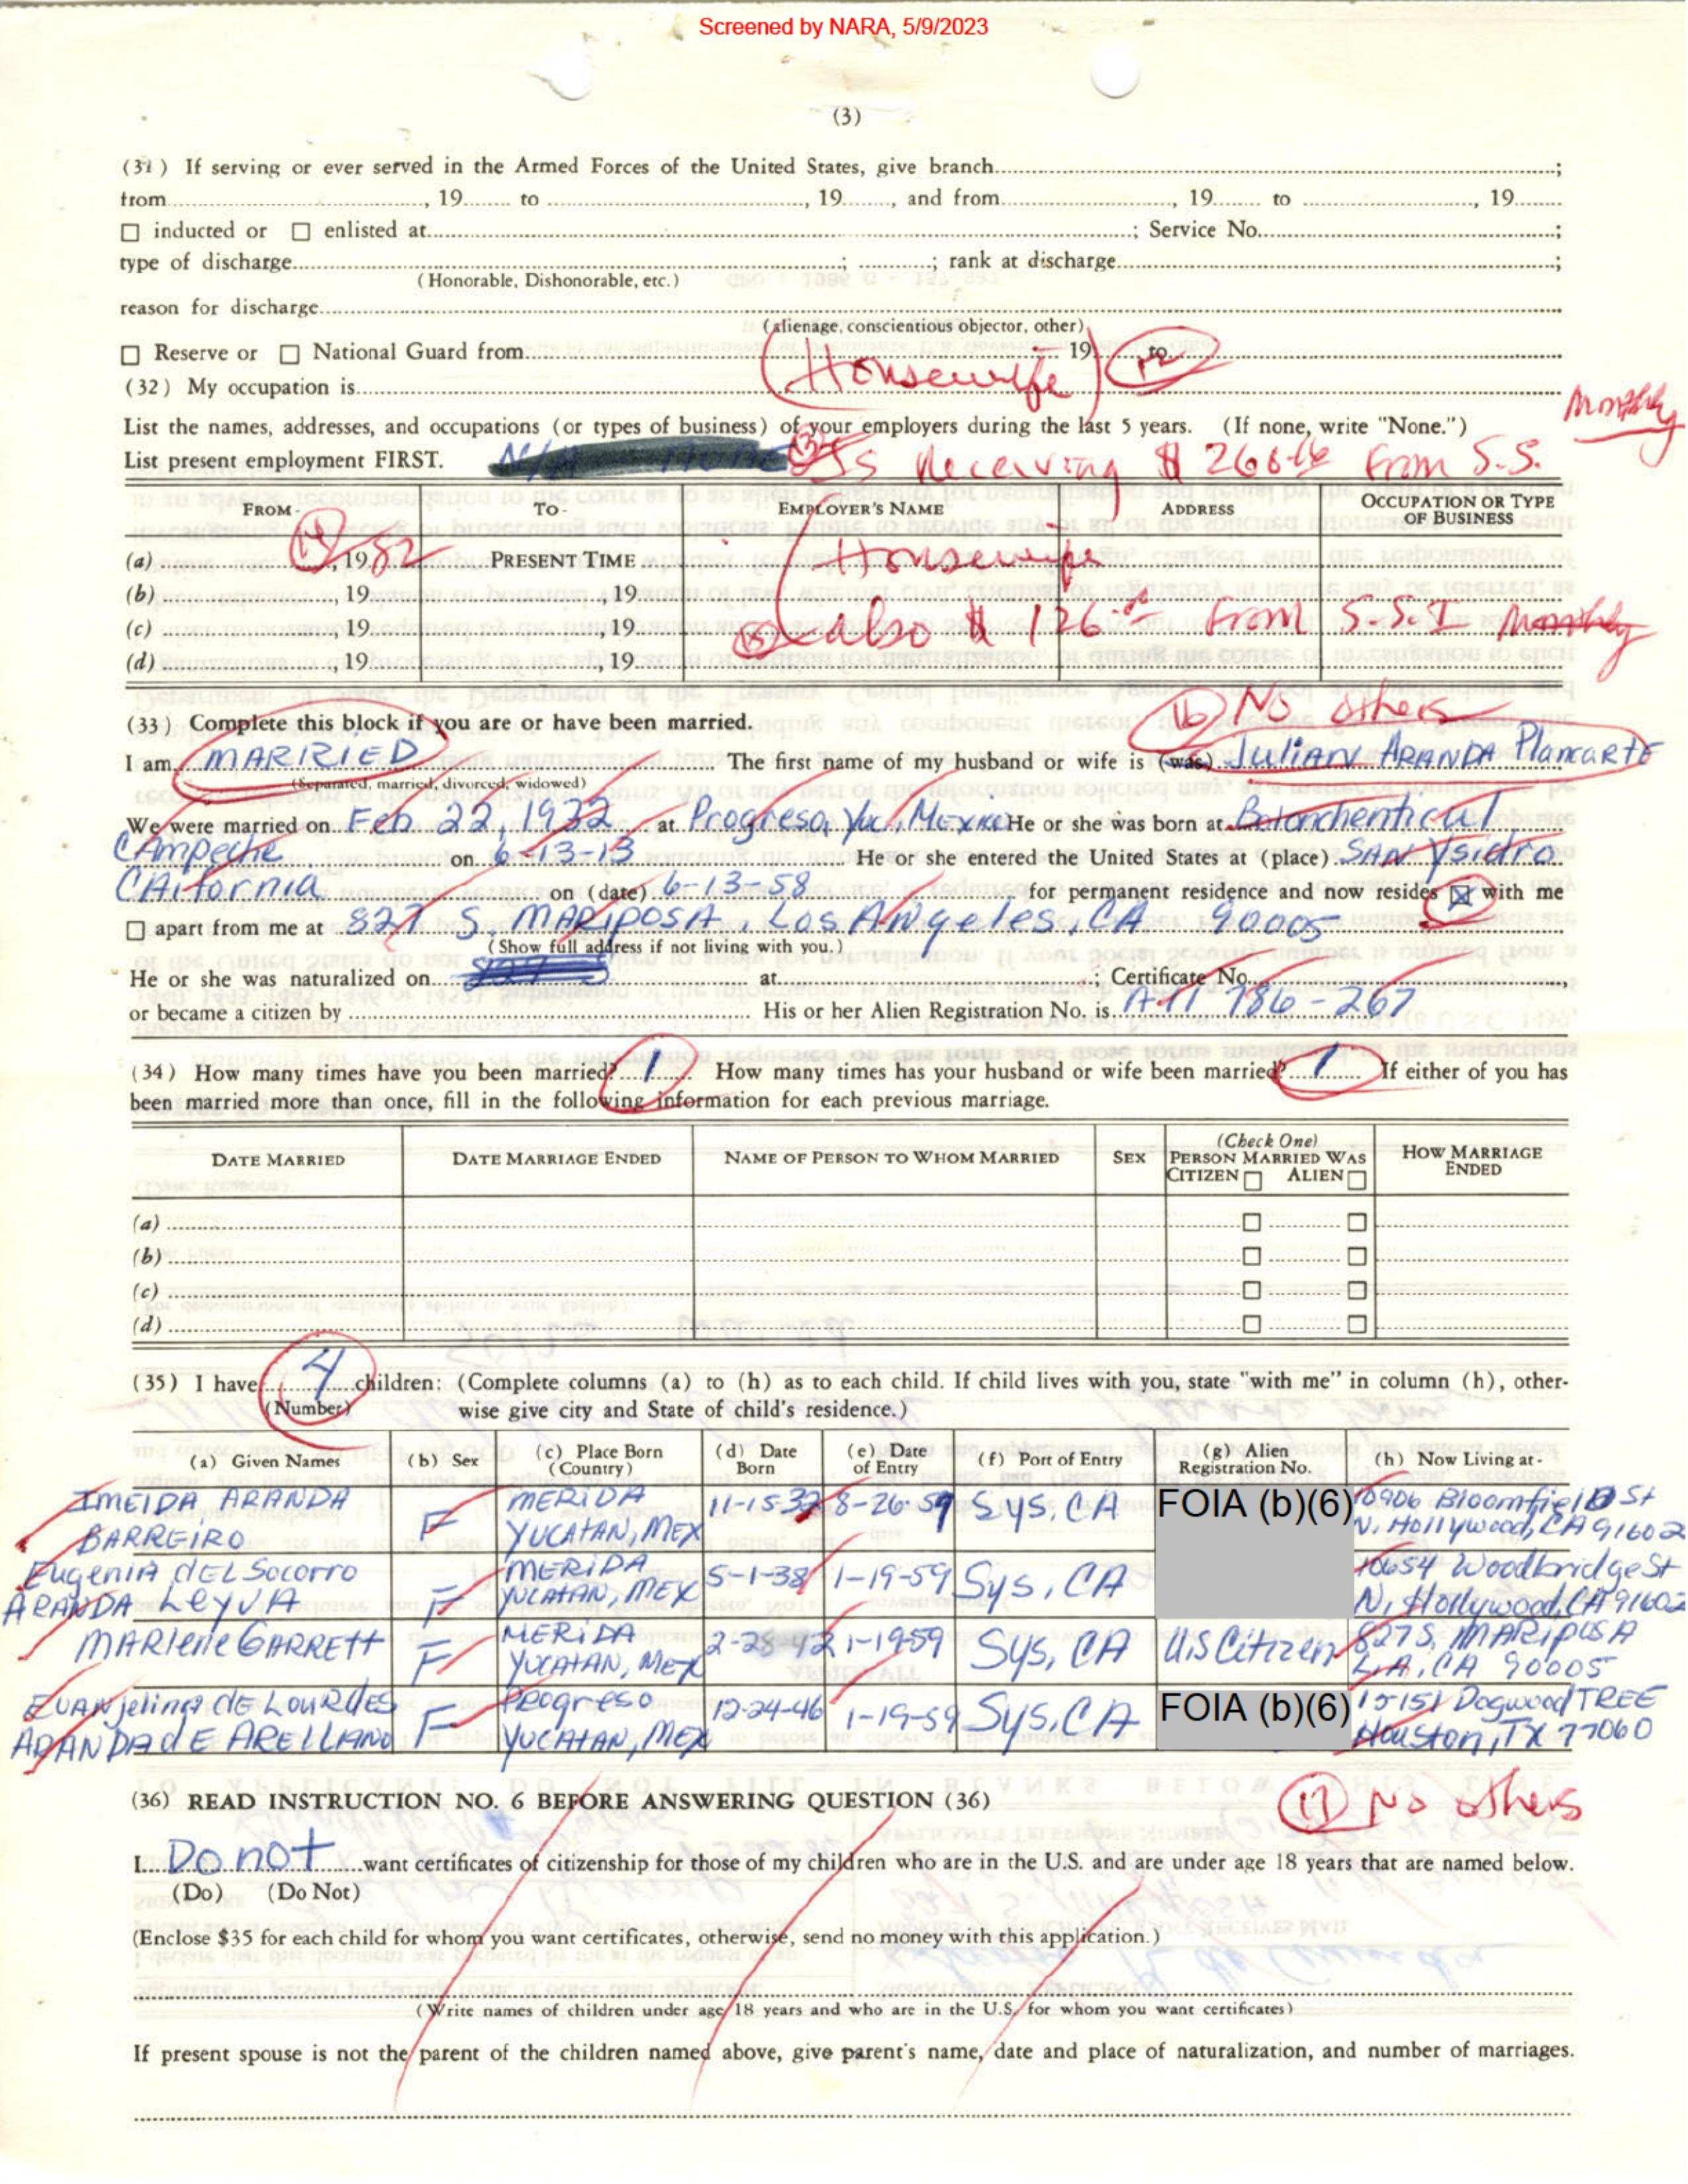 Screened by NARA, 5/9/2023
(3)
(31) If serving or ever served in the Armed Forces of the United States, give branch ;
from , 19 to , 19 , and from , 19 to , 19
☐ inducted or ☐ enlisted at ; Service No. ;
type of discharge ; ; rank at discharge ;
(Honorable, Dishonorable, etc.)
reason for discharge
(alienage, conscientious objector, other)
☐ Reserve or ☐ National Guard from 19 to
(32) My occupation is Housewife 12
Monthly
List the names, addresses, and occupations (or types of business) of your employers during the last 5 years. (If none, write "None.")
List present employment FIRST. (13) Is Receiving $ 266 From S.S.
FROM- TO- EMPLOYER'S NAME ADDRESS OCCUPATION OR TYPE OF BUSINESS
(a) (14), 19 82 PRESENT TIME Housewife
(b) , 19 , 19
(c) , 19 , 19 (15) also $ 126 From S.S.I Monthly
(d) , 19 , 19
(16) No others
(33) Complete this block if you are or have been married.
I am MARRIED The first name of my husband or wife is (was) Julian ARANDA Plancarte
(Separated, married, divorced, widowed)
We were married on Feb 22, 1932 at Progreso, Yuc, Mexico He or she was born at Bolonchenticul
CAmpeche on 6-13-13 He or she entered the United States at (place) SAN Ysidro
CAlifornia on (date) 6-13-58 for permanent residence and now resides ☒ with me
☐ apart from me at 827 S. MARiposA, Los Angeles, CA 90005
(Show full address if not living with you.)
He or she was naturalized on at ; Certificate No. ,
or became a citizen by His or her Alien Registration No. is A 11 786-267
(34) How many times have you been married? 1 How many times has your husband or wife been married? 1 If either of you has
been married more than once, fill in the following information for each previous marriage.
DATE MARRIED DATE MARRIAGE ENDED NAME OF PERSON TO WHOM MARRIED SEX (Check One) PERSON MARRIED WAS CITIZEN ☐ ALIEN ☐ HOW MARRIAGE ENDED
(a) ☐ ☐
(b) ☐ ☐
(c) ☐ ☐
(d) ☐ ☐
(35) I have 4 children: (Complete columns (a) to (h) as to each child. If child lives with you, state "with me" in column (h), other-
(Number) wise give city and State of child's residence.)
(a) Given Names (b) Sex (c) Place Born (Country) (d) Date Born (e) Date of Entry (f) Port of Entry (g) Alien Registration No. (h) Now Living at-
IMElDA ARANDA F MERIDA 11-15-32 8-26-59 Sys, CA FOIA (b)(6) 10906 Bloomfield St
BARREIRO YUCATAN, MEX N. Hollywood, CA 91602
Eugenia del Socorro F MERIDA 5-1-38 1-19-59 Sys, CA 10654 Woodbridge St
ARANDA LeyvA YUCATAN, MEX N. Hollywood, CA 91602
MARlene GARRETT F MERIDA 2-28-42 1-19-59 Sys, CA U.S Citizen 827 S. MARiposA
YUCATAN, MEX L.A, CA 90005
Evanjelina de LOURDES F Progreso 12-24-46 1-19-59 Sys, CA FOIA (b)(6) 15151 Dogwood TREE
ARANDA dE ARELLANO YUCATAN, MEX Houston, TX 77060
(36) READ INSTRUCTION NO. 6 BEFORE ANSWERING QUESTION (36) (17) No others
I Do not want certificates of citizenship for those of my children who are in the U.S. and are under age 18 years that are named below.
(Do) (Do Not)
(Enclose $35 for each child for whom you want certificates, otherwise, send no money with this application.)
(Write names of children under age 18 years and who are in the U.S. for whom you want certificates)
If present spouse is not the parent of the children named above, give parent's name, date and place of naturalization, and number of marriages.